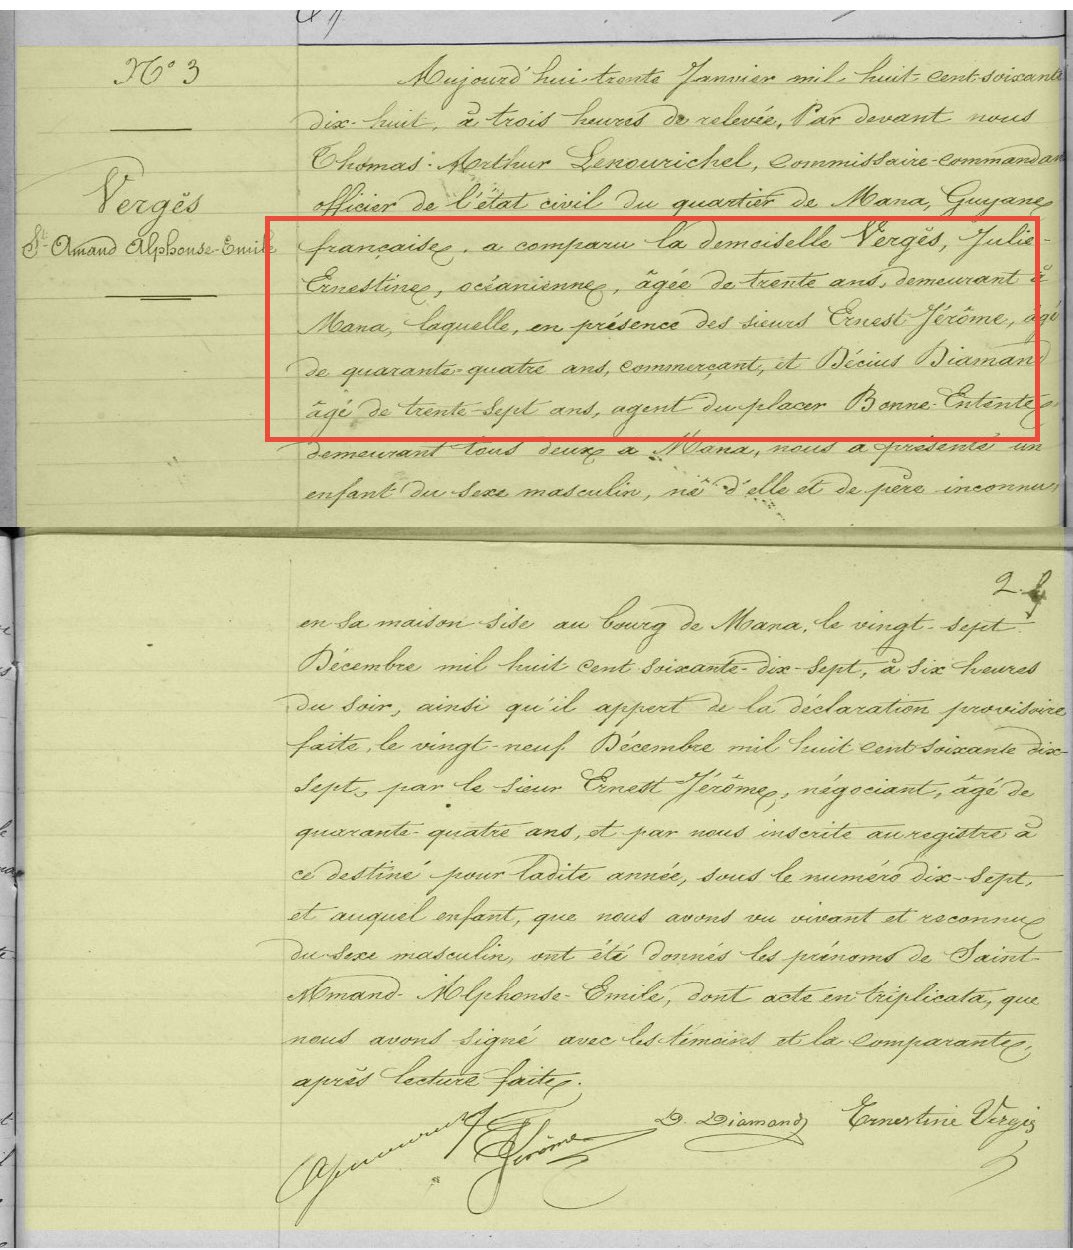 N° 3
Vergès
St Amand Alphonse-Emile
Aujourd'hui trente Janvier mil huit-cent-soixante
dix-huit, à trois heures de relevée, Par devant nous
Thomas-Arthur Lenourichel, commissaire-commandant
officier de l'état civil du quartier de Mana, Guyane
française, a comparu la demoiselle Vergès, Julie-
Ernestine, océanienne, âgée de trente ans, demeurant à
Mana, laquelle, en présence des sieurs Ernest Jérôme, âgé
de quarante-quatre ans, commerçant, et Décius Diamand
âgé de trente-sept ans, agent du placer Bonne-Entente,
demeurant tous deux à Mana, nous a présenté un
enfant du sexe masculin, né d'elle et de père inconnu,
2.
en sa maison sise au bourg de Mana, le vingt-sept
Décembre mil huit cent soixante-dix-sept, à six heures
du soir, ainsi qu'il appert de la déclaration provisoire
faite, le vingt-neuf Décembre mil huit cent soixante dix-
sept, par le sieur Ernest Jérôme, négociant, âgé de
quarante-quatre ans, et par nous inscrite au registre à
ce destiné pour ladite année, sous le numéro dix-sept,
et auquel enfant, que nous avons vu vivant et reconnu
du sexe masculin, ont été donnés les prénoms de Saint-
Amand-Alphonse-Emile, dont acte en triplicata, que
nous avons signé avec les témoins et la comparante,
après lecture faite.
Jérôme D. Diamand Ernestine Vergès